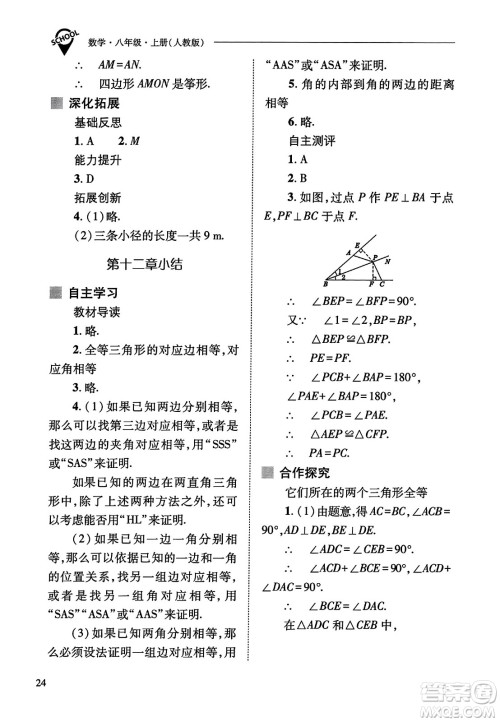 SCHOOL
数学·八年级·上册(人教版)
∴ AM=AN.
∴ 四边形 AMON 是筝形.
深化拓展
基础反思
1. A 2. M
能力提升
3. D
拓展创新
4. (1)略.
(2)三条小径的长度一共 9 m.
第十二章小结
自主学习
教材导读
1. 略.
2. 全等三角形的对应边相等,对
应角相等
3. 略.
4. (1)如果已知两边分别相等,
那么可以找第三边对应相等,或者是
找这两边的夹角对应相等,用“SSS”
或“SAS”来证明.
(2)如果已知两边在两直角三角
形中,那么除了以上两种方法还可以
考虑应用“HL”来证明.
(3)如果已知一边一角对应相
等,那么可以根据已知的一边和一角
的位置关系,找一组边对应相等,或
者是找另一组角对应相等,用
“SAS”“ASA”或“AAS”来证明.
(3)如果已知两角分别相等,那
么必须设法证明一组边对应相等,用
“AAS”或“ASA”来证明.
5. 角的内部到角的两边的距离
相等
6. 略.
自主测评
1. A
2. B
3. 如图,过点 P 作 PE⊥BA 于点
E,PF⊥BC 于点 F.
E
A
P
N
1
2
B
F
C
∴ ∠BEP=∠BFP=90°.
又∵ ∠1=∠2,BP=BP,
∴ △BEP≌△BFP.
∴ PE=PF.
∵ ∠PCB+∠BAP=180°,
∠PAE+∠BAP=180°,
∴ ∠PCB=∠PAE.
∴ △AEP≌△CFP.
∴ PA=PC.
合作探究
它们所在的两个三角形全等
1. (1)由题意,得 AC=BC,∠ACB=
90°,AD⊥DE,BE⊥DE.
∴ ∠ADC=∠CEB=90°.
∴ ∠ACD+∠BCE=90°,∠ACD+
∠DAC=90°.
∴ ∠BCE=∠DAC.
在△ADC 和△CEB 中,
24